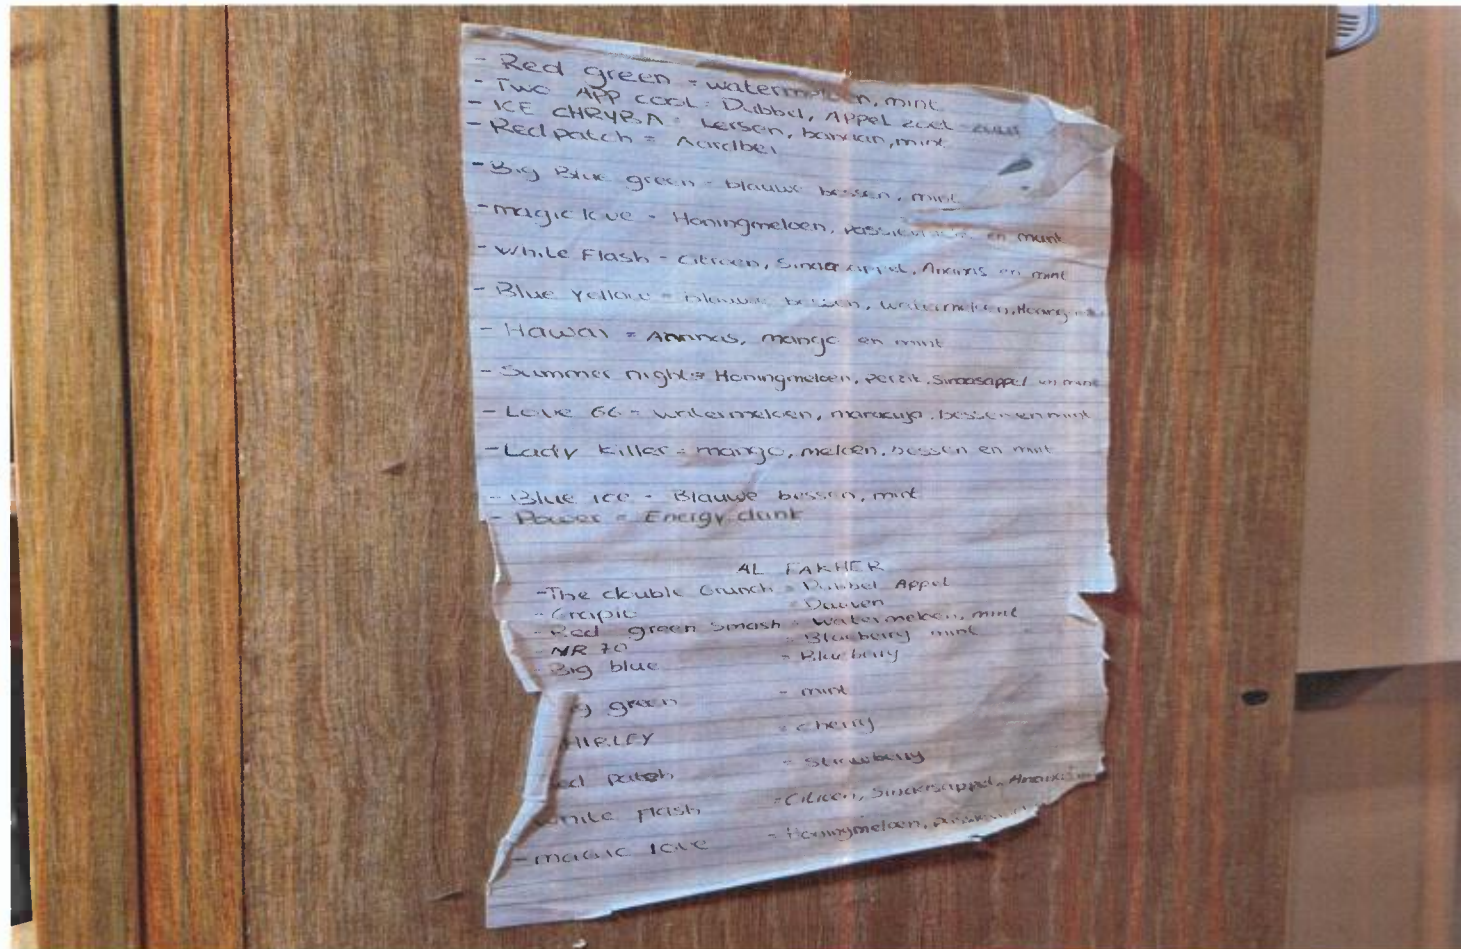 - Red green = watermeloen, mint
- Two APP cool = Dubbel, Appel zoet zuur
- ICE CHRYBA = kersen, banaan, mint
- Red patch = Aardbei
- Big Blue green = blauwe bessen, mint
- magic love = Honingmeloen, en munt
- White Flash = citroen, Sinaasappel, Ananas en mint
- Blue Yellow = blauwe bessen, watermeloen, Honing
- Hawai = Annnas, mango en mint
- Summer night = Honingmeloen, perzik, Sinaasappel en mint
- Love 66 = watermeloen, maracuja, bessen en mint
- Lady killer = mango, meloen, bessen en mint
- Blue ice = Blauwe bessen, mint
- Power = Energy drink
AL FAKHER
- The double Crunch = Dubbel Appel
- Grapic = Duiven
- Red green Smash = watermeloen, mint
- NR 70 = Blueberry mint
- Big blue = Blueberry
g green = mint
HIRLEY = cherry
ed patch = Strawberry
white flash = Citroen, Sinaasappel, Ananas
- magic love = Honingmeloen,